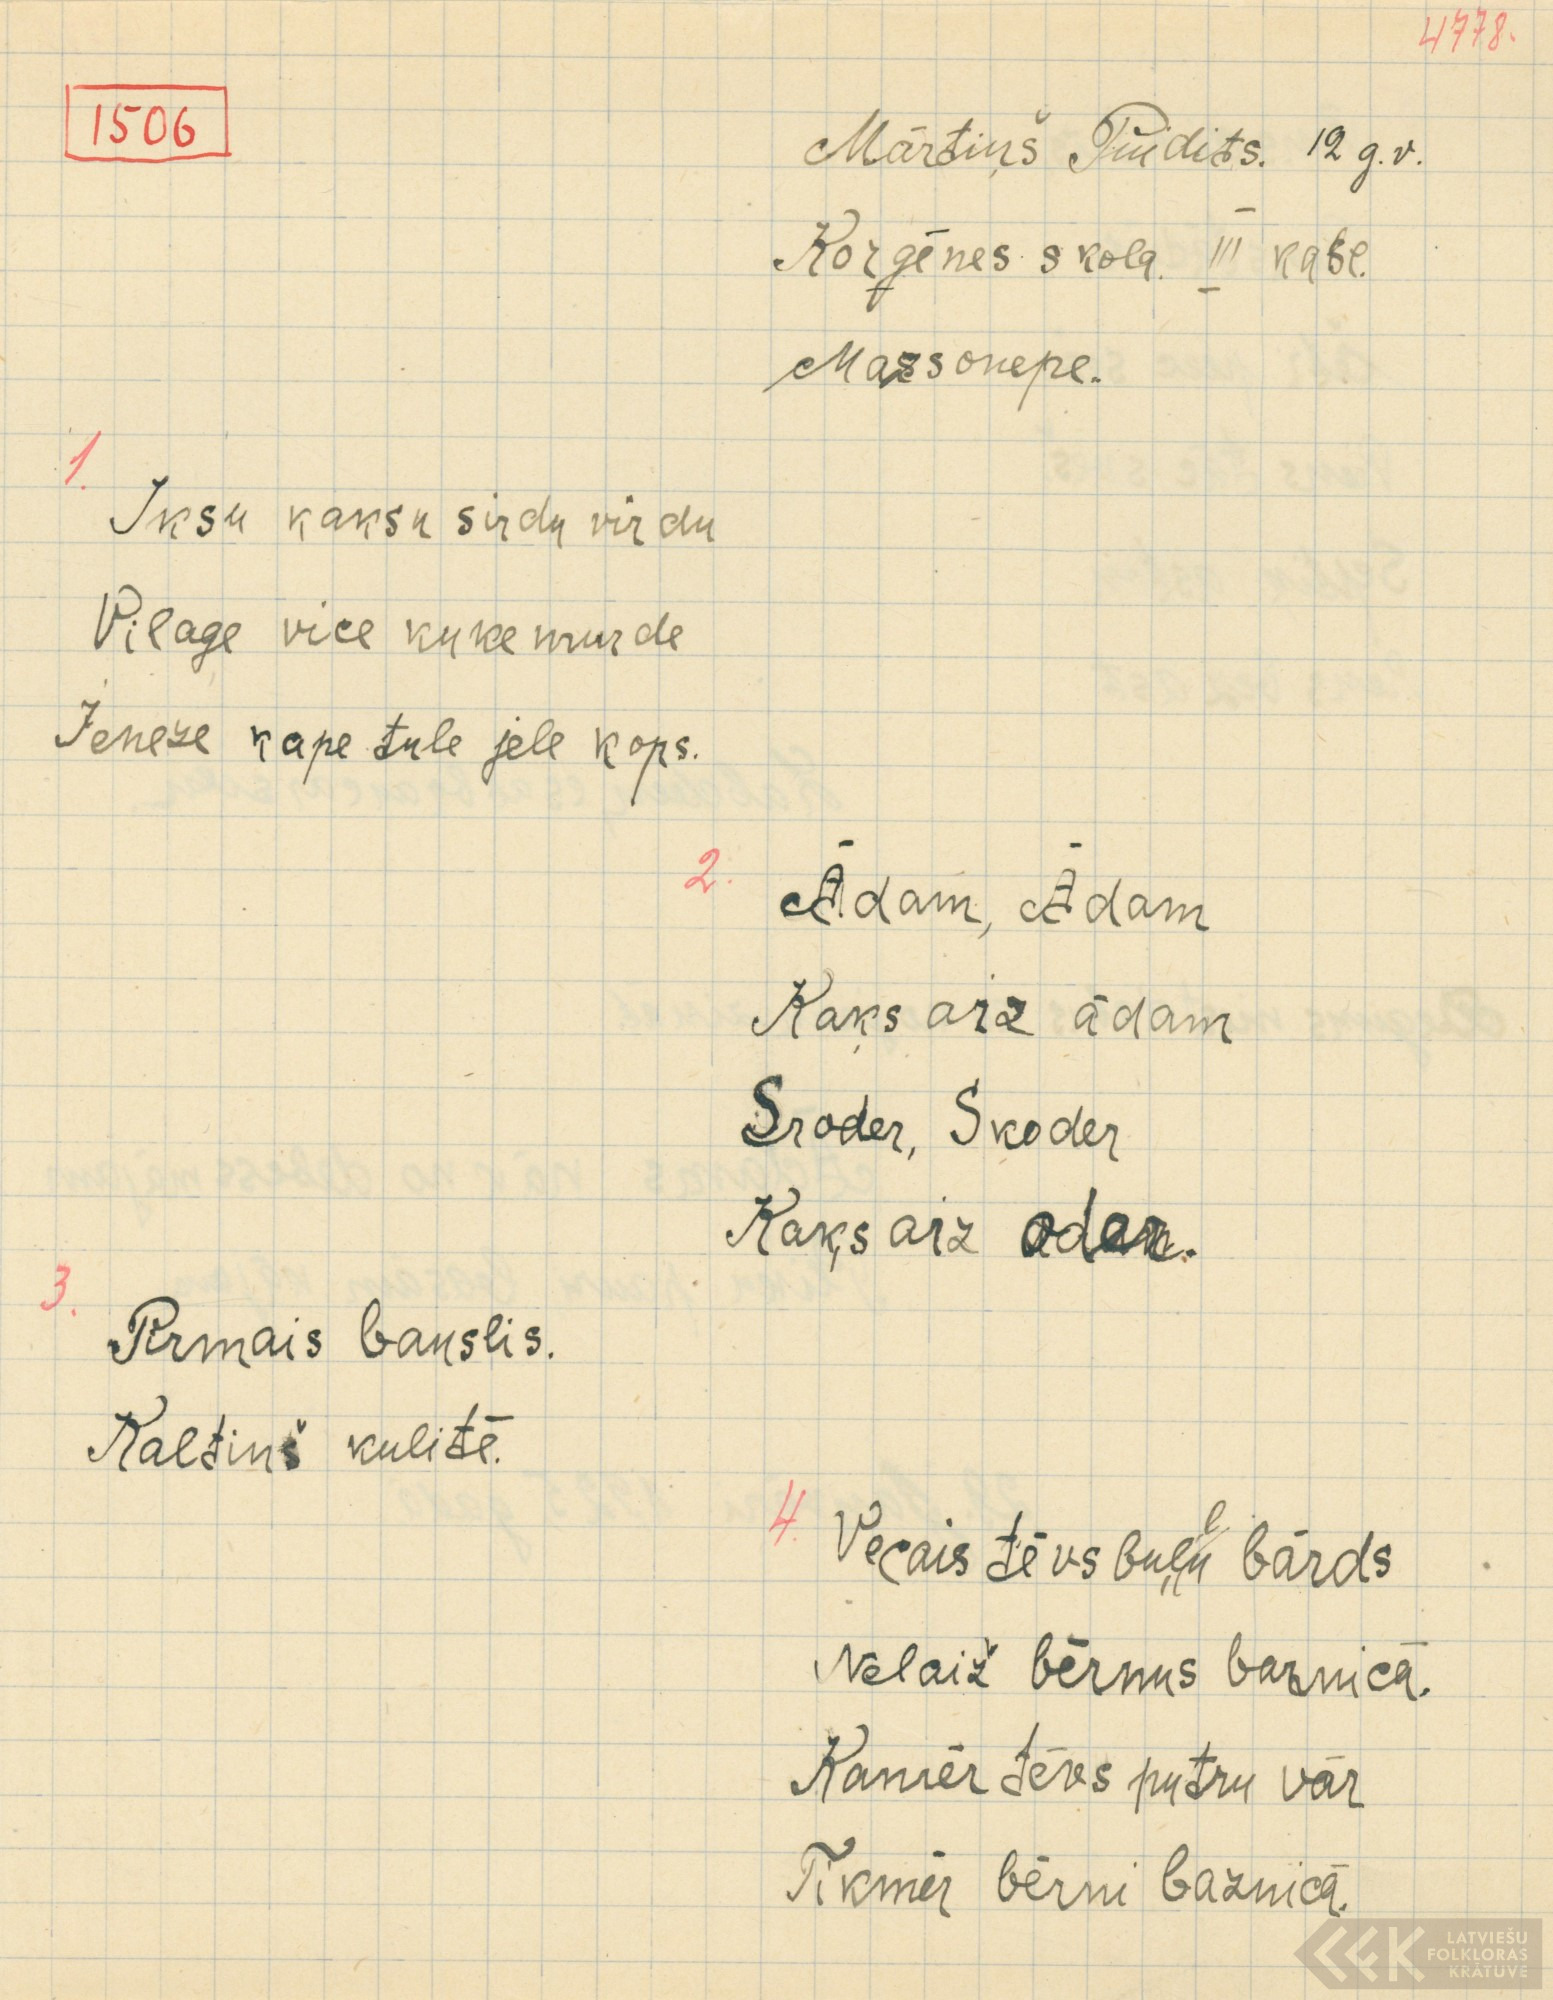 4778.
1506
Mārtiņš Pūidits. 12 g. v.
Korģēnes skola. III kase.
Mazsonepe.
1.
Iksu kaksu sirdu virdu
Vilage vice kuke murde
Jeneze kape tule jele kops.
2.
Ādam, Ādam
Kaķs aiz ādam
Sroder, Skoder
Kaķs aiz odar.
3.
Pirmais bauslis.
Kaltiņš kulitē.
4.
Vecais tēvs buļļu bārds
Nelaiž bērnus baznicā.
Kamēr tēvs putru vār
Tikmēr bērni baznicā.
LATVIEŠU
FOLKLORAS
KRĀTUVE